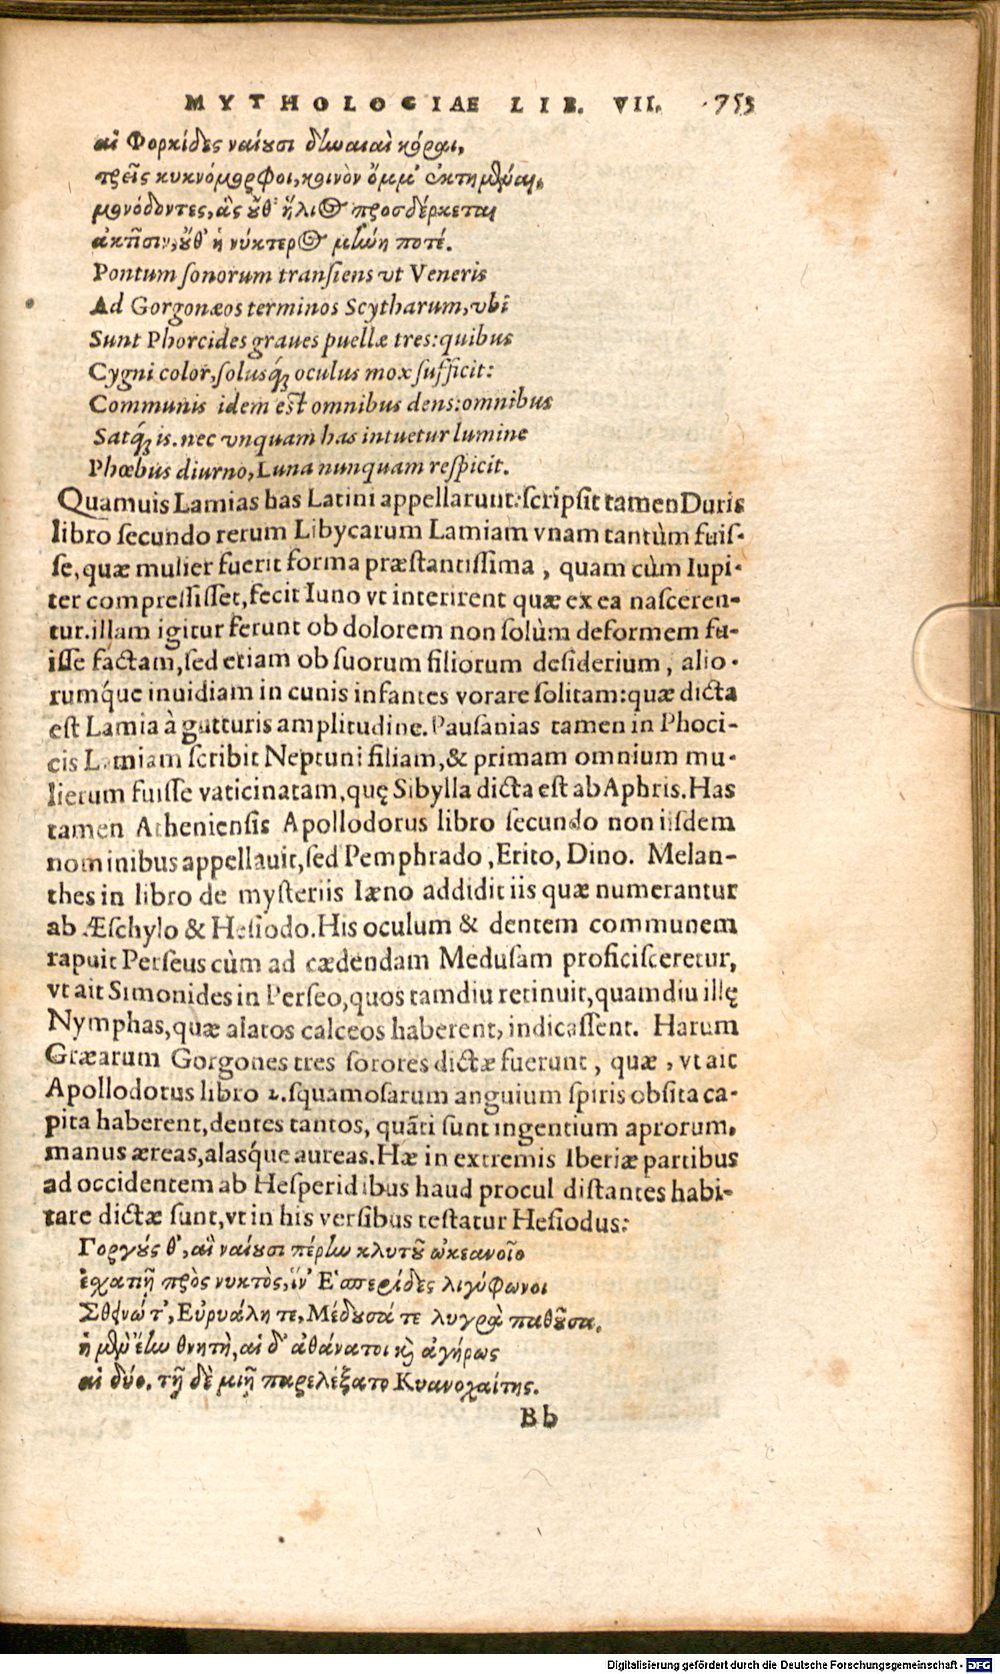 MYTHOLOGIAE LIB. VII. 753
αἱ Φορκίδες ναίουσι δίωαιαὶ κόραι,
τρεῖς κυκνόμορφοι, κοινὸν ὄμμ' ἐκτημέναι,
μονόδοντες, ἃς οὔθ' ἥλιος προσδέρκεται
ἀκτῖσιν, οὔθ' ἡ νύκτερος μήνη ποτέ.
Pontum sonorum transiens vt Veneris
Ad Gorgonæos terminos Scytharum, vbi
Sunt Phorcides graues puellæ tres: quibus
Cygni color, solusq́; oculus mox sufficit:
Communis idem est omnibus dens: omnibus
Satq́; is. nec vnquam has intuetur lumine
Phœbus diurno, Luna nunquam respicit.
Quamuis Lamias has Latini appellarunt: scripsit tamen Duris
libro secundo rerum Libycarum Lamiam vnam tantùm fuis-
se, quæ mulier fuerit forma præstantissima, quam cùm Iupi-
ter compressisset, fecit Iuno vt interirent quæ ex ea nasceren-
tur. illam igitur ferunt ob dolorem non solùm deformem fu-
isse factam, sed etiam ob suorum filiorum desiderium, alio-
rumq́ue inuidiam in cunis infantes vorare solitam: quæ dicta
est Lamia à gutturis amplitudine. Pausanias tamen in Phoci-
cis Lamiam scribit Neptuni filiam, & primam omnium mu-
lierum fuisse vaticinatam, quę Sibylla dicta est ab Aphris. Has
tamen Atheniensis Apollodorus libro secundo non iisdem
nominibus appellauit, sed Pemphrado, Erito, Dino. Melan-
thes in libro de mysteriis Iæno addidit iis quæ numerantur
ab Æschylo & Hesiodo. His oculum & dentem communem
rapuit Perseus cùm ad cædendam Medusam proficisceretur,
vt ait Simonides in Perseo, quos tamdiu retinuit, quamdiu illę
Nymphas, quæ alatos calceos haberent, indicassent. Harum
Græarum Gorgones tres sorores dictæ fuerunt, quæ, vt ait
Apollodorus libro 2. squamosarum anguium spiris obsita ca-
pita haberent, dentes tantos, quāti sunt ingentium aprorum,
manus æreas, alasq́ue aureas. Hæ in extremis Iberiæ partibus
ad occidentem ab Hesperidibus haud procul distantes habi-
tare dictæ sunt, vt in his versibus testatur Hesiodus:
Γοργούς θ', αἳ ναίουσι πέρην κλυτοῦ ὠκεανοῖο
ἐχατιῇ πρὸς νυκτὸς, ἵν' Ἑσπερίδες λιγύφωνοι
Σθενώ τ', Εὐρυάλη τε, Μέδουσά τε λυγρὰ παθοῦσα.
ἡ μὲν ἔην θνητὴ, αἱ δ' ἀθάνατοι καὶ ἀγήρως
αἱ δύο. τῇ δὲ μιῇ παρελέξατο Κυανοχαίτης.
Bb
Digitalisierung gefördert durch die Deutsche Forschungsgemeinschaft - DFG